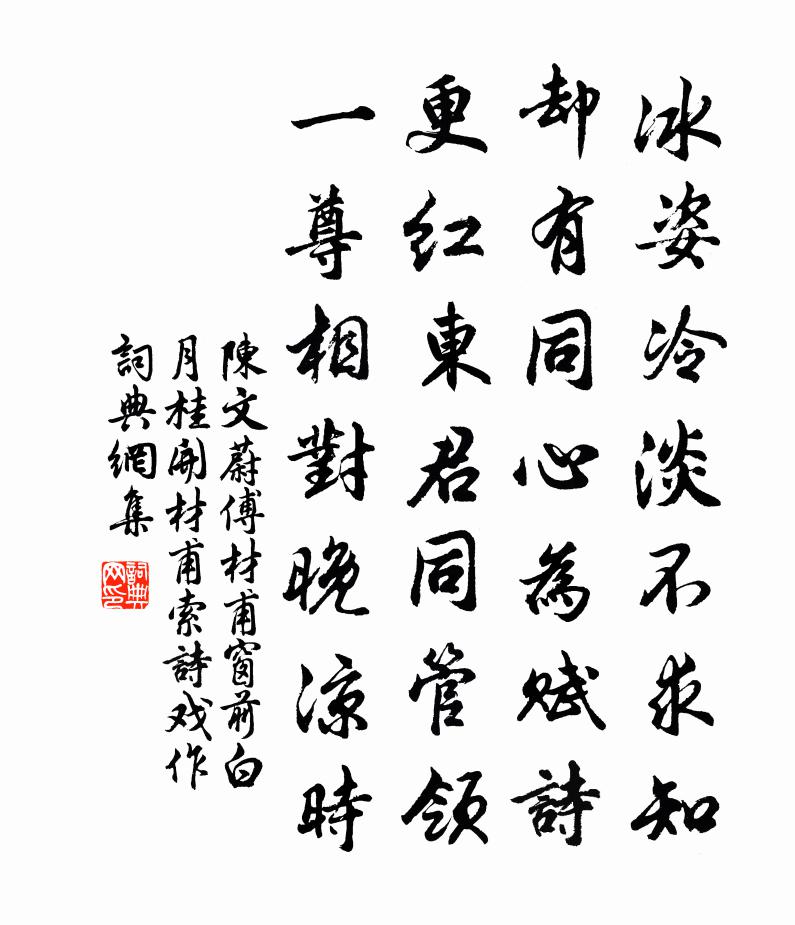 冰姿冷淡不求知
却有同心為赋詩
更红東君同管領
一尊相對晚凉時
陳文蔚傅材甫窗前白
月桂開材甫索詩戏作
詞典網集
詞典
网印